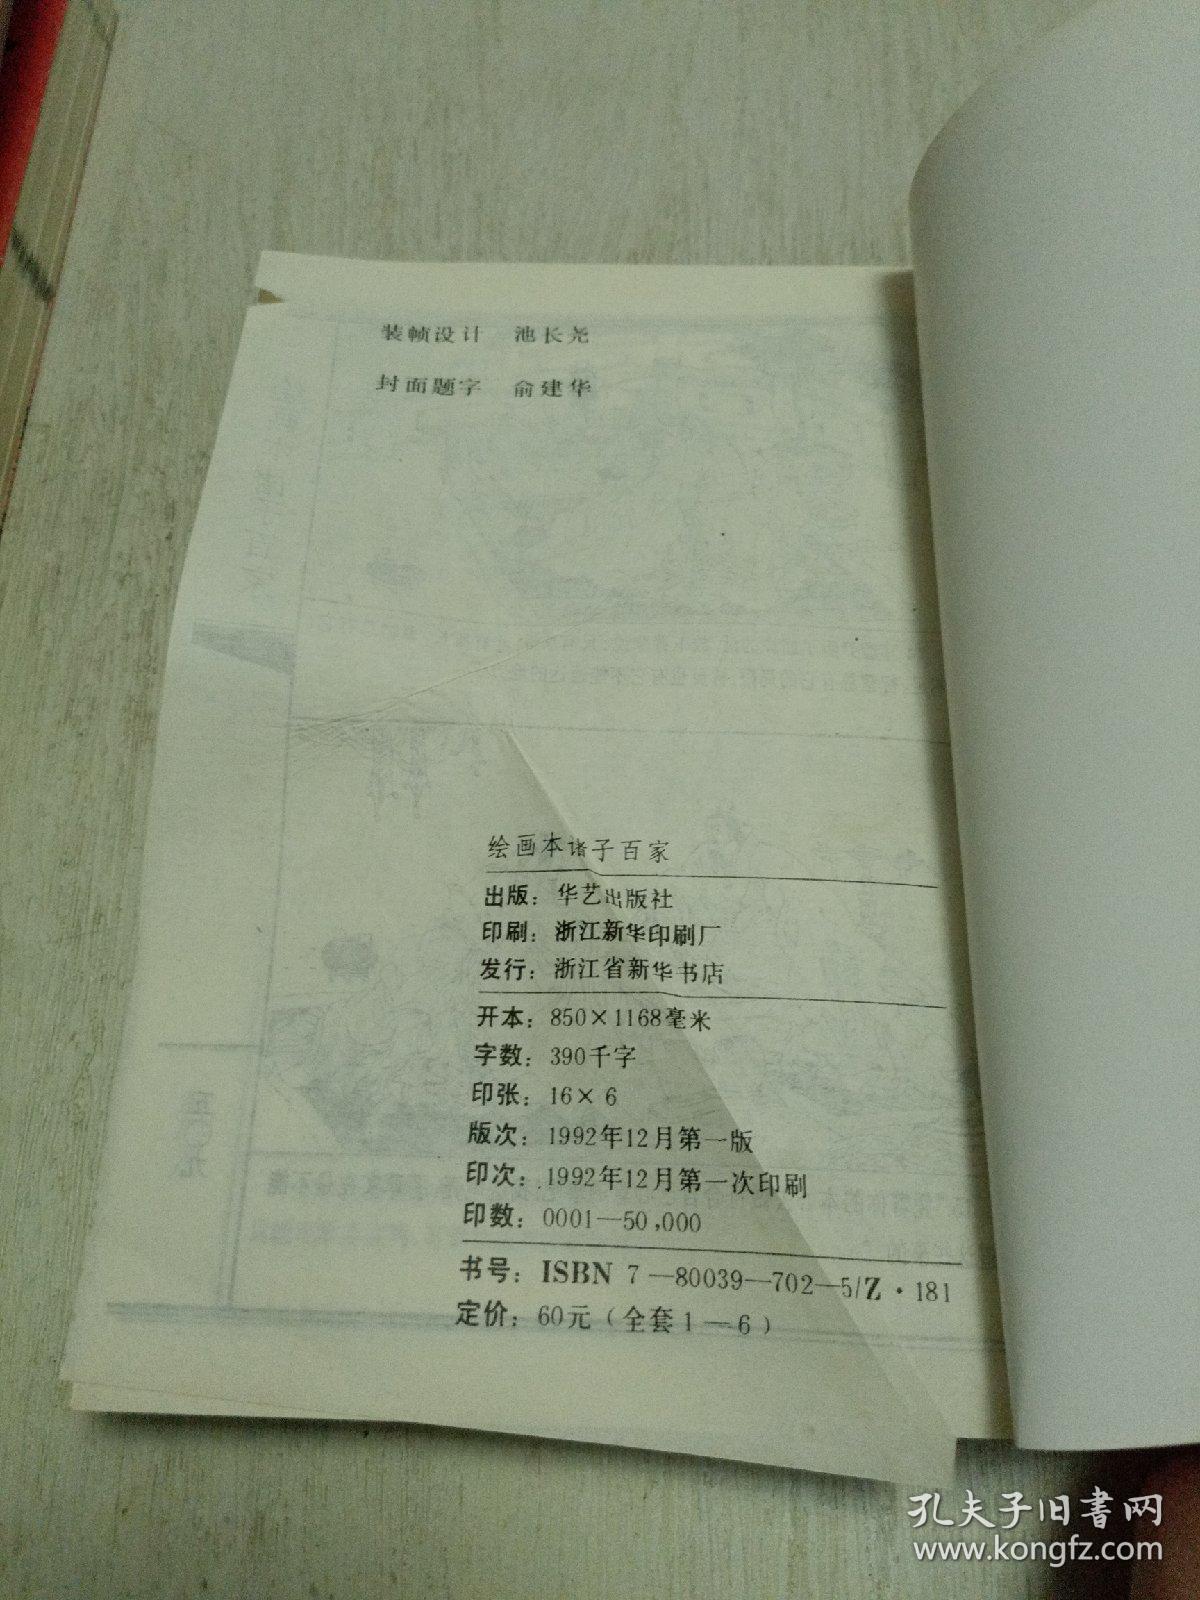 装帧设计　池长尧
封面题字　俞建华
绘画本诸子百家
出版：华艺出版社
印刷：浙江新华印刷厂
发行：浙江省新华书店
开本：850×1168毫米
字数：390千字
印张：16×6
版次：1992年12月第一版
印次：1992年12月第一次印刷
印数：0001—50,000
书号：ISBN 7—80039—702—5/Z·181
定价：60元（全套1—6）
孔夫子旧书网
www.kongfz.com